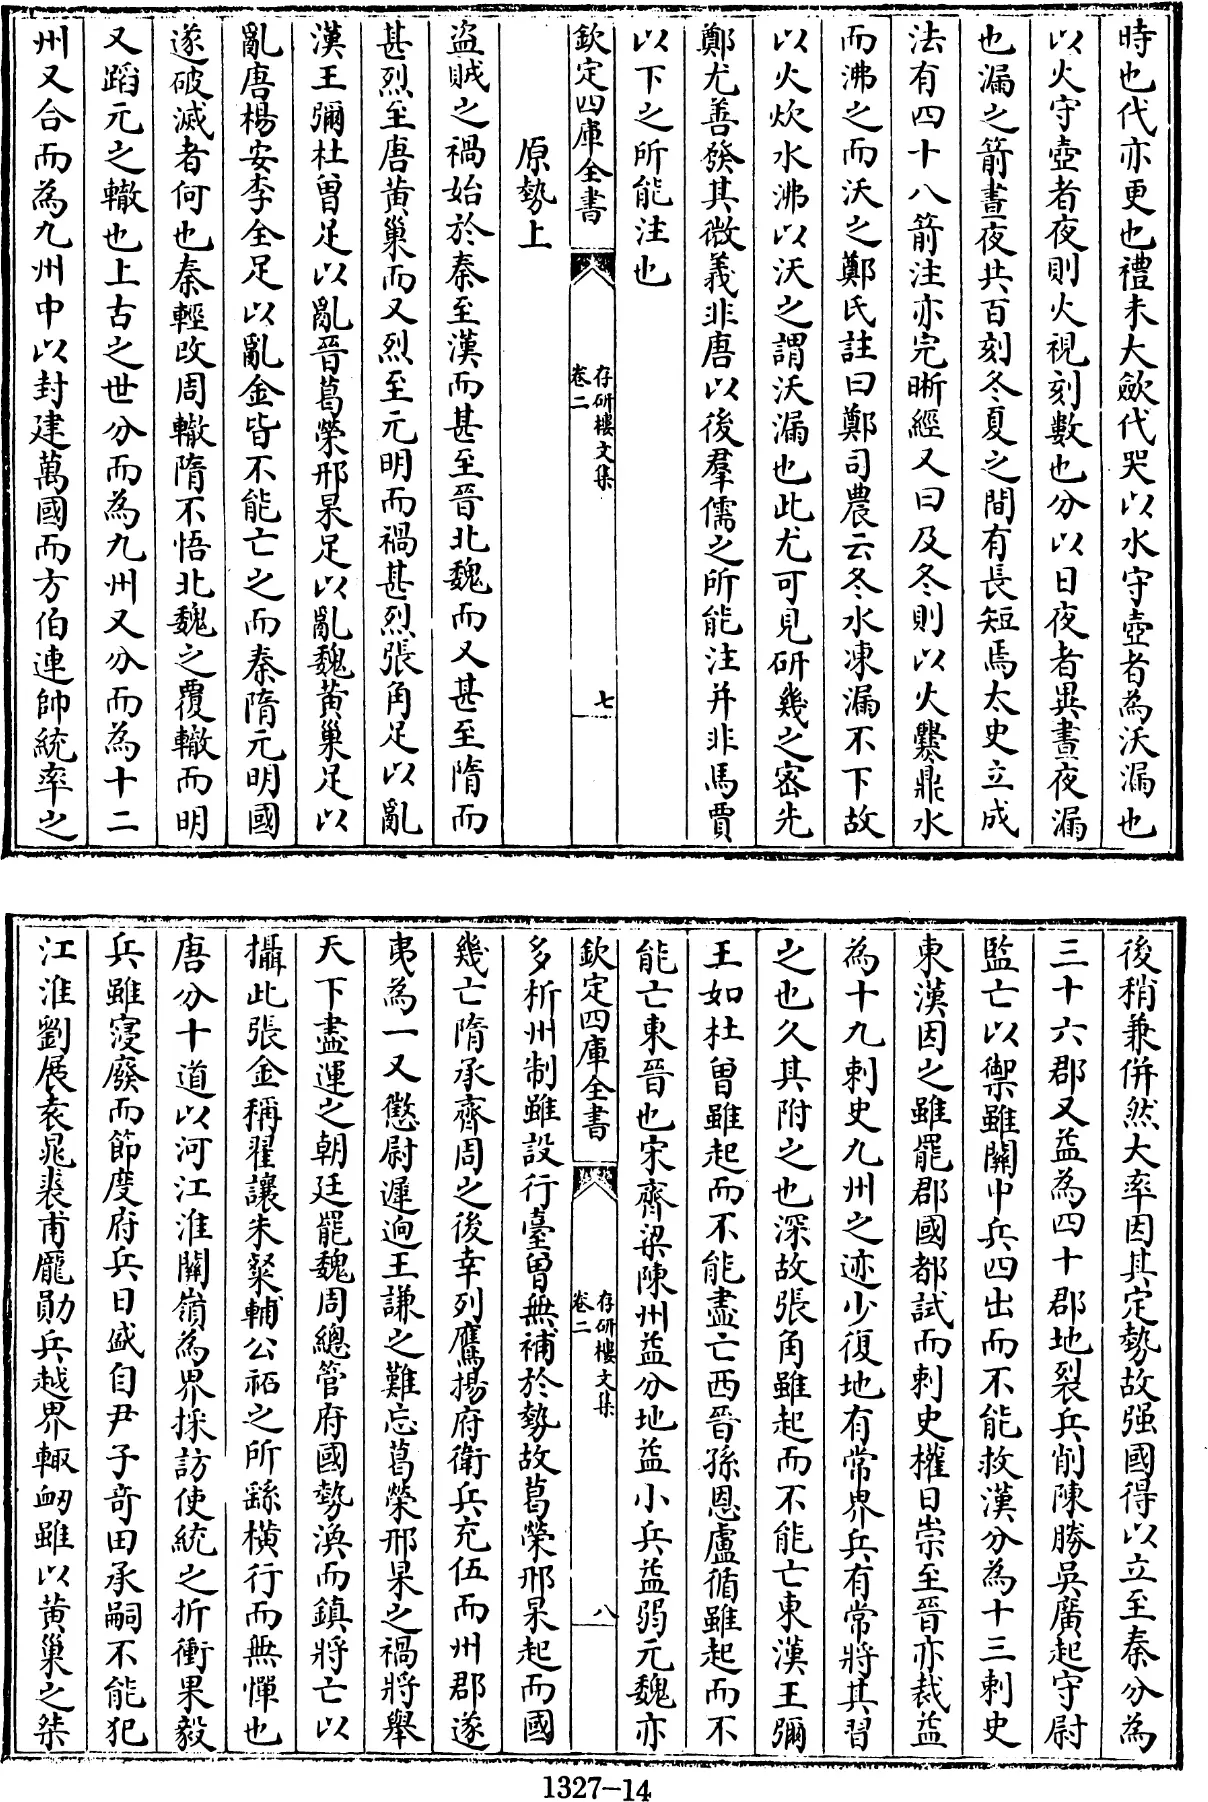 時也代亦更也禮未大歛代哭以水守壺者為沃漏也
以火守壺者夜則火視刻數也分以日夜者異晝夜漏
也漏之箭晝夜共百刻冬夏之間有長短焉太史立成
法有四十八箭注亦完晰經又曰及冬則以火爨鼎水
而沸之而沃之鄭氏註曰鄭司農云冬水凍漏不下故
以火炊水沸以沃之謂沃漏也此尤可見研幾之密先
鄭尤善發其微義非唐以後羣儒之所能注并非馬賈
以下之所能注也
欽定四庫全書
存研樓文集
卷二
七
原勢上
盜賊之禍始於秦至漢而甚至晉北魏而又甚至隋而
甚烈至唐黄巢而又烈至元明而禍甚烈張角足以亂
漢王彌杜曾足以亂晉葛榮邢杲足以亂魏黄巢足以
亂唐楊安李全足以亂金皆不能亡之而秦隋元明國
遂破滅者何也秦輕改周轍隋不悟北魏之覆轍而明
又蹈元之轍也上古之世分而為九州又分而為十二
州又合而為九州中以封建萬國而方伯連帥統率之
後稍兼併然大率因其定勢故强國得以立至秦分為
三十六郡又益為四十郡地裂兵削陳勝吳廣起守尉
監亡以禦雖關中兵四出而不能救漢分為十三刺史
東漢因之雖罷郡國都試而刺史權日崇至晉亦裁益
為十九刺史九州之迹少復地有常界兵有常將其習
之也久其附之也深故張角雖起而不能亡東漢王彌
王如杜曾雖起而不能盡亡西晉孫恩盧循雖起而不
能亡東晉也宋齊梁陳州益分地益小兵益弱元魏亦
欽定四庫全書
存研樓文集
卷二
八
多析州制雖設行臺曾無補於勢故葛榮邢杲起而國
幾亡隋承齊周之後幸列鷹揚府衛兵充伍而州郡遂
夷為一又懲尉遲迥王謙之難忘葛榮邢杲之禍將舉
天下盡運之朝廷罷魏周總管府國勢渙而鎮將亡以
攝此張金稱翟讓朱粲輔公祏之所繇橫行而無憚也
唐分十道以河江淮關嶺為界採訪使統之折衝果毅
兵雖寖廢而節度府兵日盛自尹子奇田承嗣不能犯
江淮劉展袁晁裘甫龐勛兵越界輒衂雖以黄巢之桀
1327-14